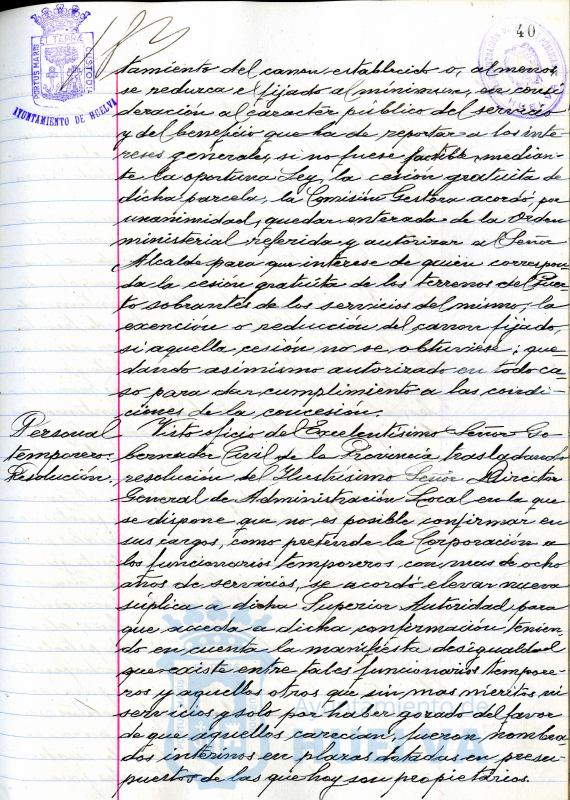 40
AYUNTAMIENTO DE HUELVA
tamiento del canon establecido o, al menos,
se reduzca el fijado al minimum, en consi-
deración al carácter público del servicio
y del beneficio que ha de reportar a los inte-
reses generales, si no fuese factible, median-
te la oportuna Ley, la cesión gratuita de
dicha parcela, la Comisión Gestora acordó, por
unanimidad, quedar enterada de la Orden
ministerial referida y autorizar al Señor
Alcalde para que interese de quien correspon-
da la cesión gratuita de los terrenos del Puer-
to sobrantes de los servicios del mismo, la
exención o reducción del canon fijado,
si aquella cesión no se obtuviese; que-
dando asimismo autorizado en todo ca-
so para dar cumplimiento a las condi-
ciones de la concesión.
Personal
temporero.
Resolución.
Visto oficio del Excelentísimo Señor Go-
bernador Civil de la Provincia trasladando
resolución del Ilustrísimo Señor Director
General de Administración Local en la que
se dispone que no es posible confirmar en
sus cargos, como pretende la Corporación a
los funcionarios temporeros con mas de ocho
años de servicios, se acordó elevar nueva
súplica a dicha Superior Autoridad para
que acceda a dicha confirmación tenien-
do en cuenta la manifiesta desigualdad
que existe entre tales funcionarios tempore-
ros y aquellos otros que sin mas meritos ni
servicios y solo por haber gozado del favor
de que aquellos carecian, fueron nombra-
dos interinos en plazas dotadas en presu-
puestos de las que hoy son propietarios.
Ayuntamiento de
HUELVA